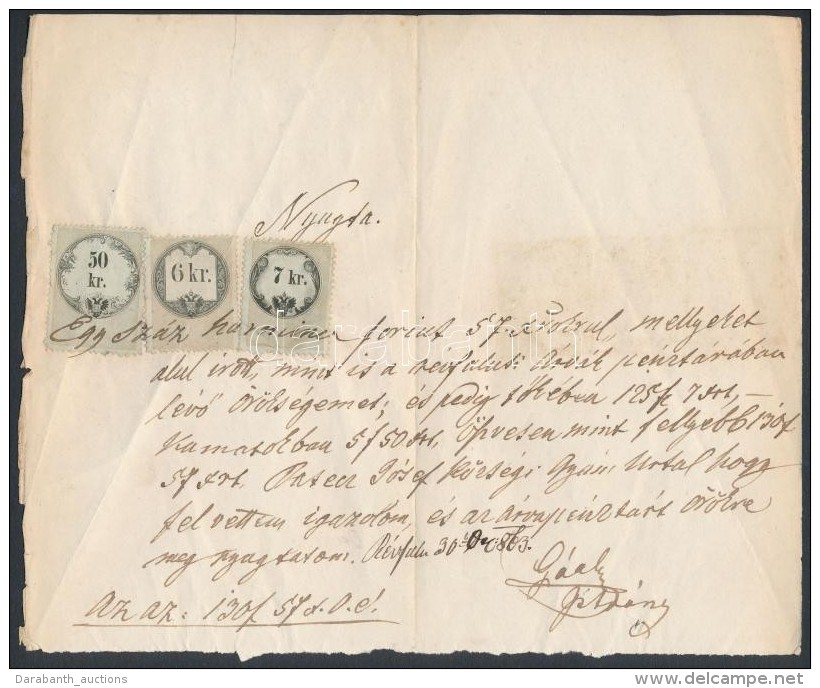 Nyugta.
50 kr.
6 kr.
7 kr.
Egy száz harmincz forint 57 mellyeket
alul irott, mint is a révfalusi Árvák pénztárában
lévő örökségemet; és pedig tőkében 125f 7 xrt, –
Kamatokban 5f 50 xrt. öszvesen mint fellyebb 130f
57 xrt. József Községi Gyám Urtal hogy
fel vettem igazolom, és az árvapénztárt örökre
meg nyugtatom. Révfalu 30 863.
Gaál
István
Az az: 130f 57 x. O. é.
darabanth
Darabanth_auctions
delcampe.net